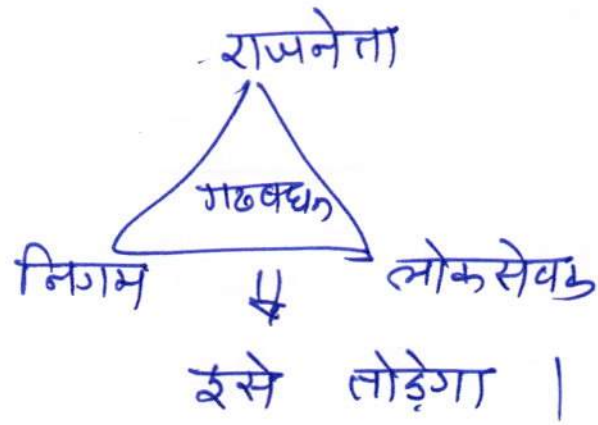 राजनेता
गठबधन
निगम लोकसेवक
इसे तोड़ेगा ।